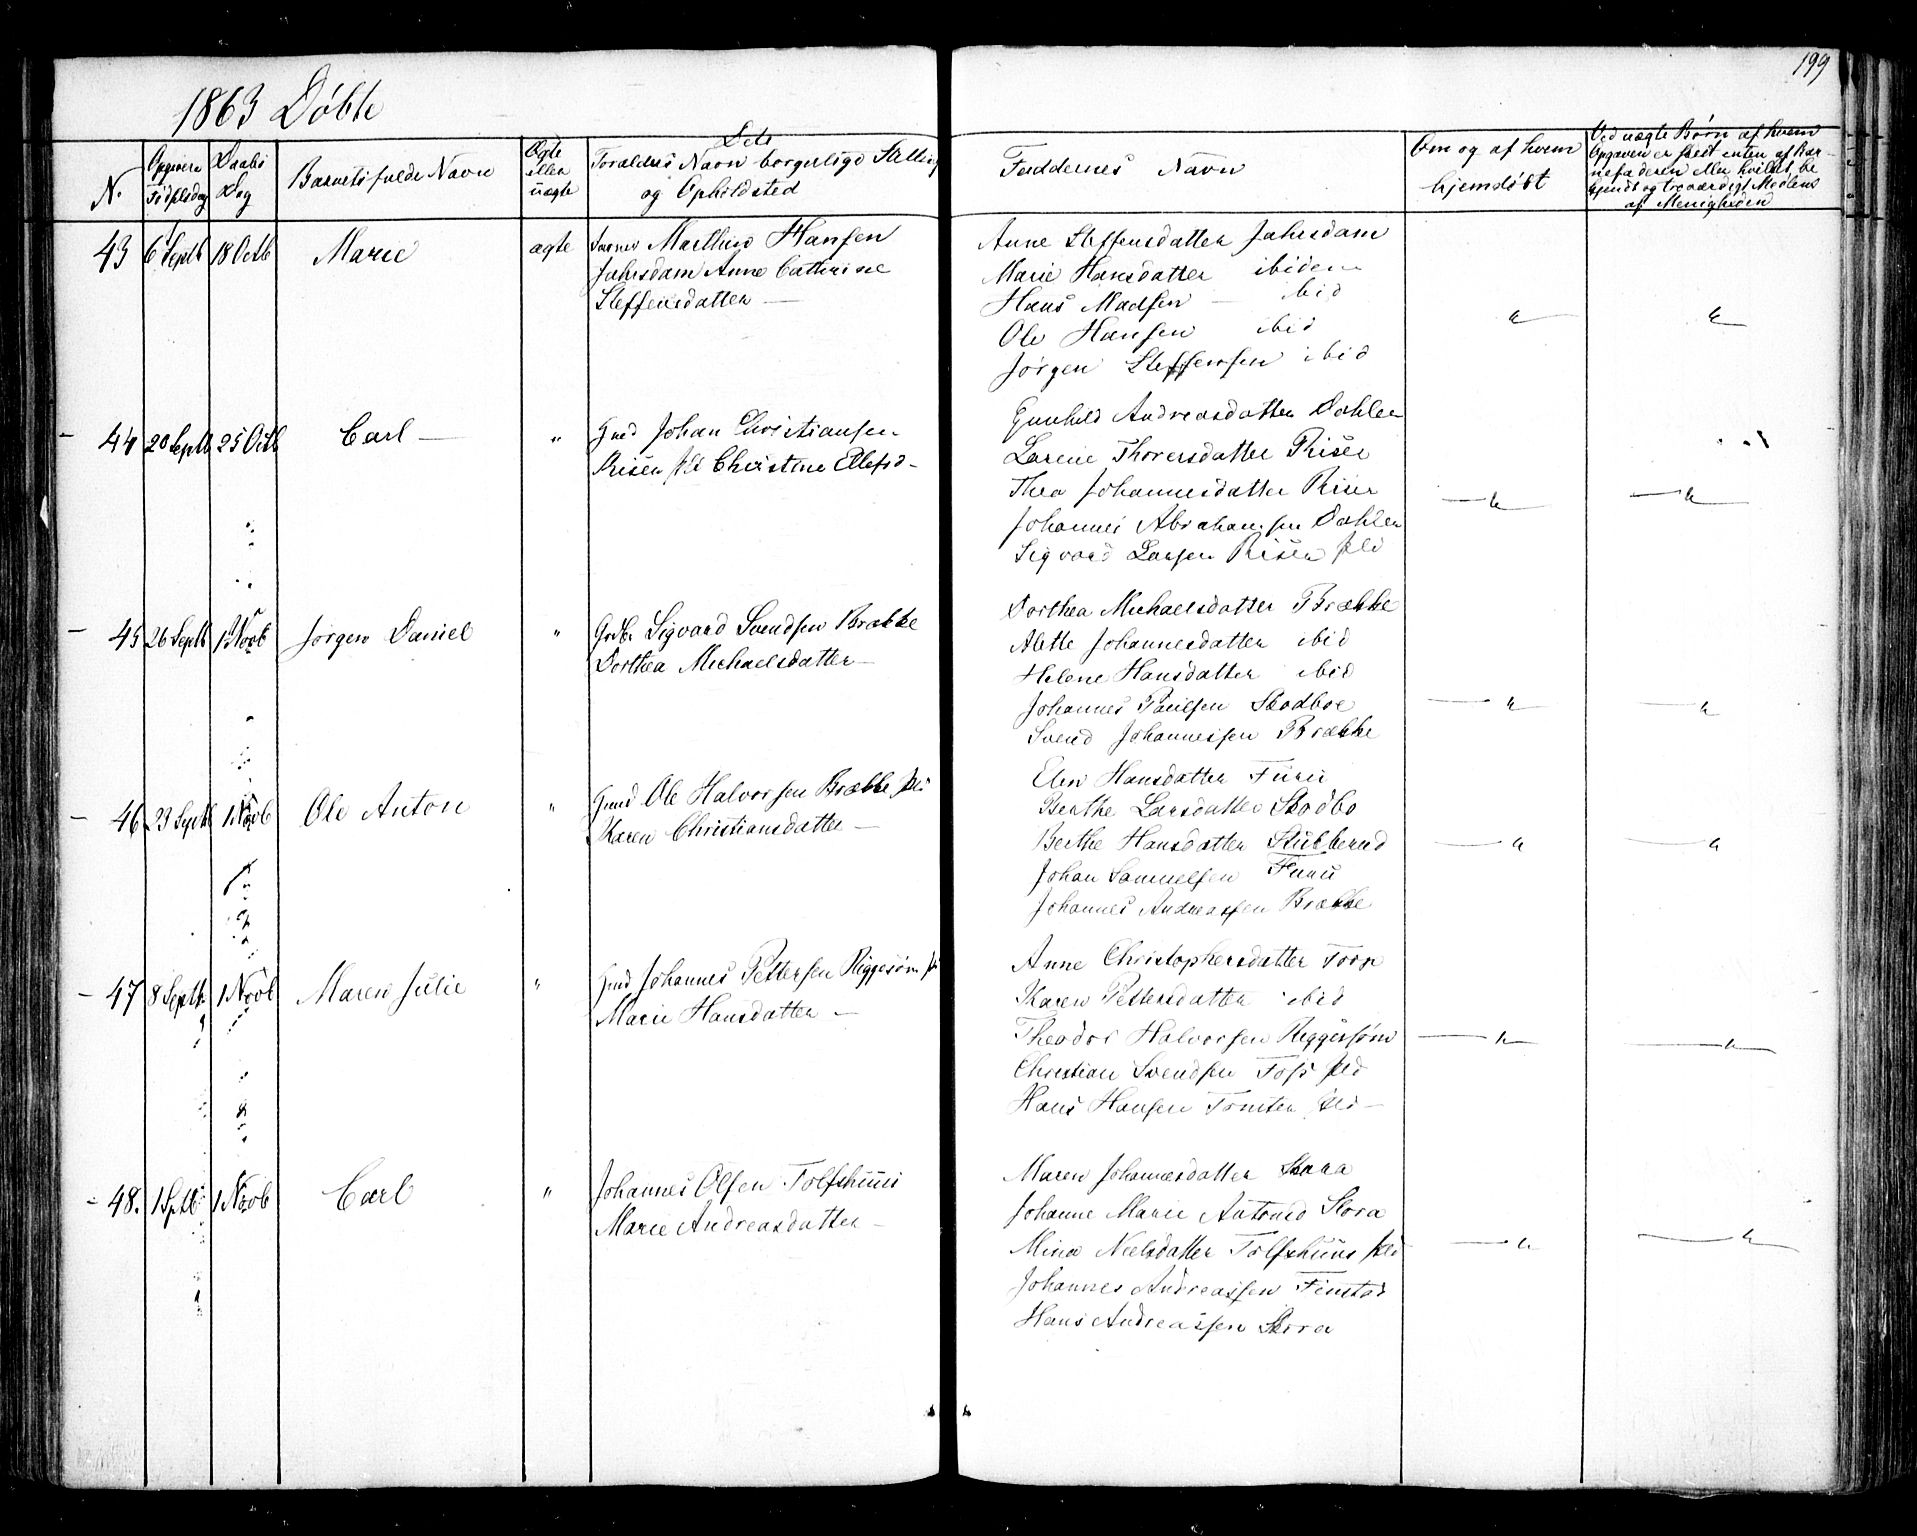 199
1863 Døbte
N.
Opgivne Fødselsdag
Daabs Dag
Barnets fulde Navn
Ægte eller uægte
Dets Forældres Navn borgerlige Stilling og Opholdsted
Faddernes Navn
Om og af hvem hjemdøbt
Ved uægte Børn af hvem Opgaven er skeet enten af Barnefaderen eller hvilket bekjendt og troværdigt Medlem af Menigheden
43 6 Septb 18 Octb Marie ægte Marthin Hansen
Jahrsdam Anne Cathrine
Steffensdatter —
Anne Steffensdatter Jahrsdam
Marie Hansdatter ibidem
Hans Madsen — ibid
Ole Hansen ibid
Jørgen Steffensen ibid
44 20 Septb 25 Octb Carl — " Gmd Johan Christiansen
Risen pld Christine Ellefsd -
Gunhild Andreasdatter Dahlen
Larene Thoresdatter Risen
Thea Johannesdatter Risen
Johannes Abrahamsen Dahlen
Sigvard Larsen Risen pld
45 26 Septb 1 Novb Jørgen Daniel " Grdbr Sigvard Svendsen Brække
Dorthea Michaelsdatter —
Dorthea Michaelsdatter Brække
Alette Johannesdatter ibid
Helene Hansdatter ibid
Johannes Paulsen Skodboe
Svend Johannessen Brække
46 23 Septb 1 Novb Ole Anton " Gmd Ole Halvorsen Brække pld
Karen Christiansdatter —
Elen Hansdatter Furu
Berthe Larsdatter Skodbo
Berthe Hansdatter Stubberud
Johan Samuelsen Furu
Johannes Andreassen Brække
47 8 Septb 1 Novb Maren Julie " Gmd Johannes Pettersen Riggesøm pld
Marie Hansdatter —
Anne Christophersdatter Torp
Karen Pettersdatter ibid
Theodor Halvorsen Riggesøm
Christian Svendsen Foss pld
Hans Hansen Tomter pld —
48. 1 Sptb 1 Novb Carl " Johannes Olsen Tolfshuus
Marie Andreasdatter —
Maren Johannesdatter Skara
Johanne Marie Skora
Mina Nielsdatter Tolfshuus pld
Johannes Andreassen Finstad
Hans Andreassen Skora